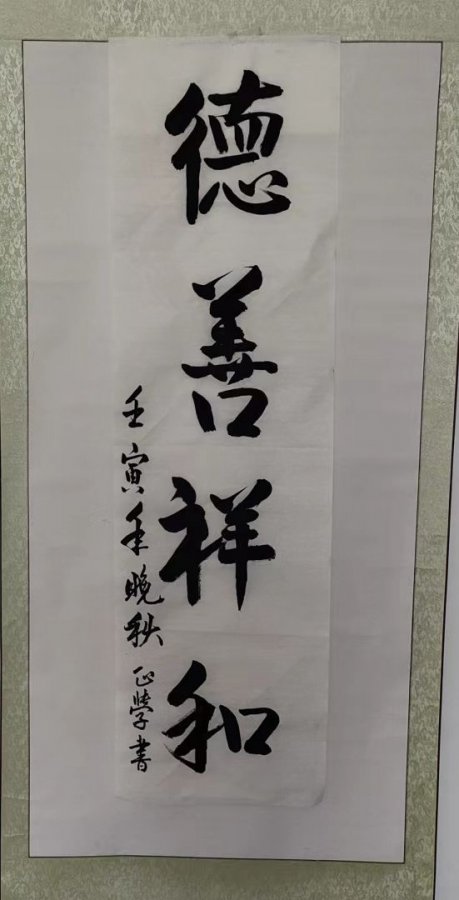 德善祥和
壬寅年晚秋 正學書